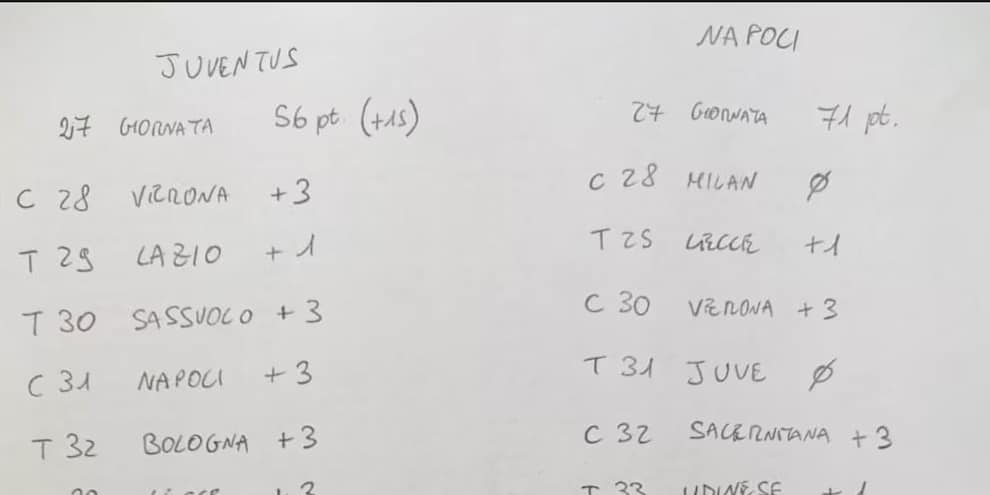 JUVENTUS
27 GIORNATA 56 pt. (+15)
C 28 VERONA +3
T 29 LAZIO +1
T 30 SASSUOLO +3
C 31 NAPOLI +3
T 32 BOLOGNA +3
NAPOLI
27 GIORNATA 71 pt.
C 28 MILAN Ø
T 29 LECCE +1
C 30 VERONA +3
T 31 JUVE Ø
C 32 SALERNITANA +3
T 33 UDINESE +1